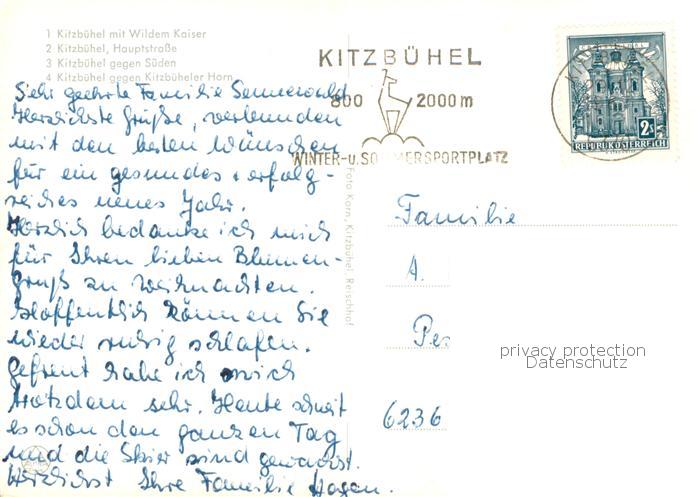 1 Kitzbühel mit Wildem Kaiser
2 Kitzbühel, Hauptstraße
3 Kitzbühel gegen Süden
4 Kitzbühel gegen Kitzbüheler Horn
KITZBÜHEL
800 2000m
WINTER-u. SOMMERSPORTPLATZ
2S
REPUBLIK ÖSTERREICH
Sehr geehrte Familie Sennewald
Herzlichste Grüße, verbunden
mit den besten Wünschen
für ein gesundes + erfolg-
reiches neues Jahr.
Herzlich bedanke ich mich
für Ihren lieben Blumen-
gruß zu Weihnachten.
Hoffentlich können Sie
wieder ruhig schlafen.
Gefreut habe ich mich
trotzdem sehr. Heute schneit
es schon den ganzen Tag
und die Skier sind gewachst.
Herzlichst Ihre Familie Hagen.
Foto Karn, Kitzbühel, Reischhof
Familie
A.
Pe
6236
privacy protection
Datenschutz